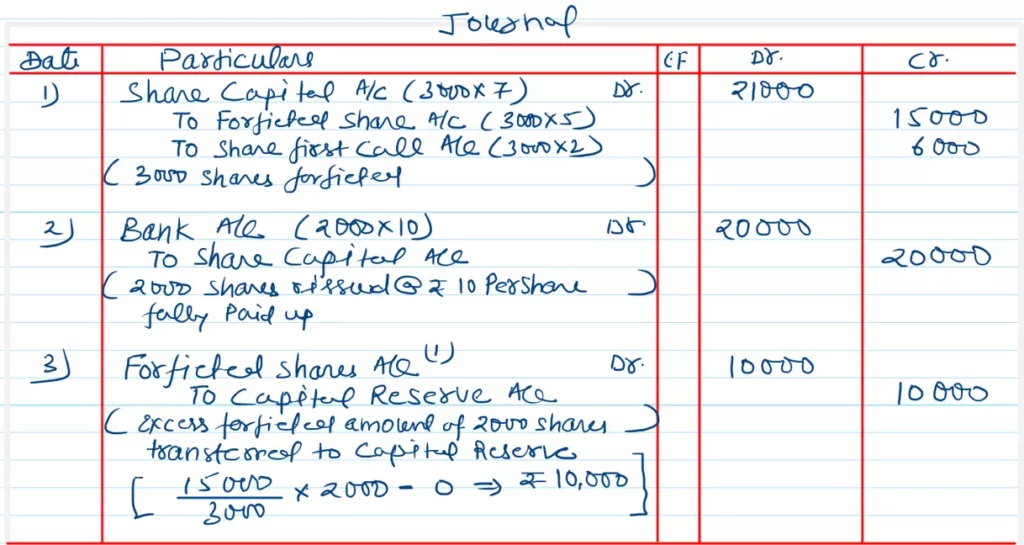 Journal
Date Particulars LF Dr. Cr.
1) Share Capital A/c (3000x7) Dr. 21000
To Forficted Share A/c (3000x5) 15000
To Share first Call A/c (3000x2) 6000
( 3000 Shares forficted )
2) Bank A/c (2000x10) Dr 20000
To Share Capital A/c 20000
( 2000 shares rissued @ ₹ 10 Per Share )
fully Paid up
3) Forficted shares A/c (1) Dr. 10000
To Capital Reserve A/c 10000
( Excess forficted amount of 2000 shares )
transferred to Capital Reserve
[ 15000/3000 x 2000 - 0 ⇒ ₹ 10,000 ]